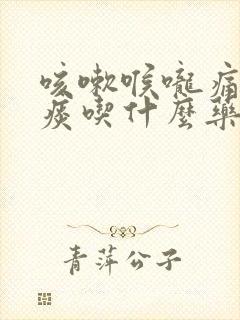 咳嗽喉嚨痛
痰喫什麼藥
青萍公子